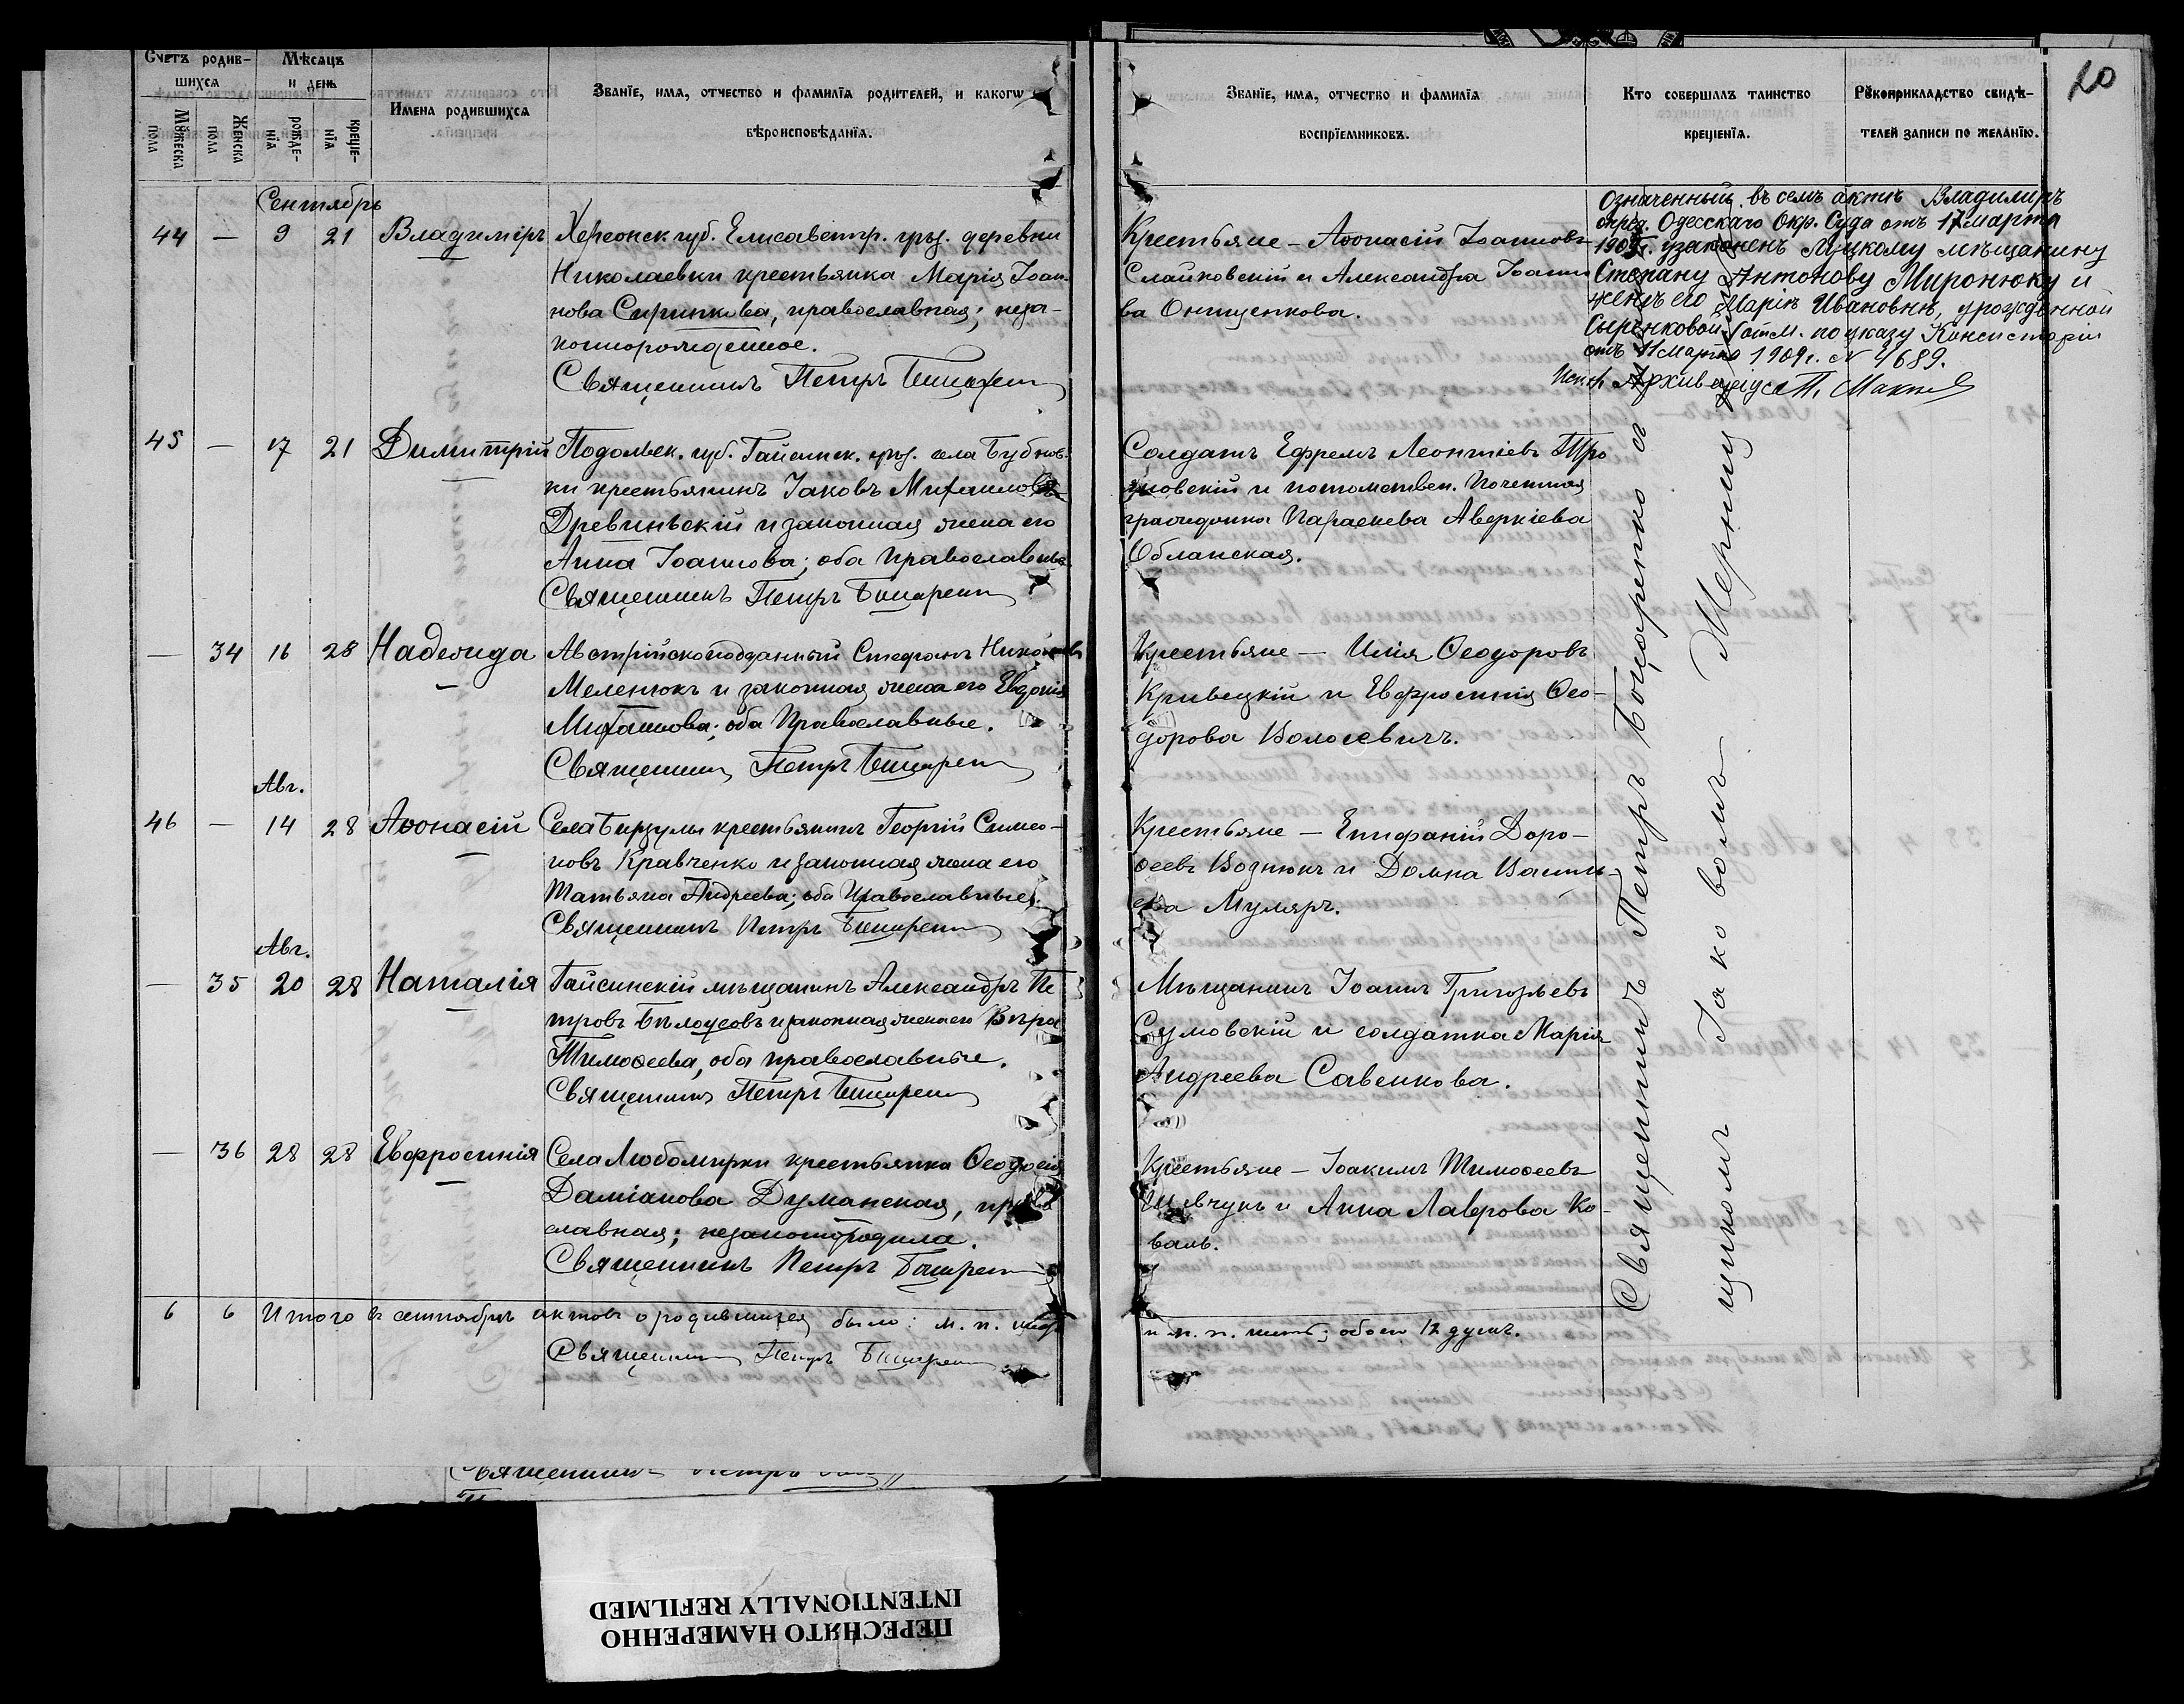 20
Счетъ родив-
шихся
Мѹжеска
пола
Женска
пола
Мѣсяцъ
и день
рожде-
нїя
креще-
нїя
Имена родившихся
Званїе, имя, отчество и фамилїя родителей, и какогѡ
вѣроисповѣданїя.
Званїе, имя, отчество и фамилїя
воспрїемниковъ.
Кто совершалъ таинство
крещенїя.
Рѹкоприкладство свидѣ-
телей записи по желанїю.
Сентябрь
44 — 9 21 Владиміръ
Херсонск. губ. Елисаветгр. уѣз. деревни
Николаевки крестьянка Марія Іоан-
нова Сиринкова, православная; неза-
коннорожденное.
Священникъ Петръ
Крестьяне — Аѳонасій Іоанновъ
Слатковскій и Александра Іоанно
ва Онищенкова.
Означенный въ семъ актѣ Владиміръ
опред. Одесскаго Окр. Суда отъ 17 марта
узаконенъ Луцкому мѣщанину
Степану Антонову Миронюку и
женѣ его Маріи Ивановнѣ, урожденной
Сыренковой. по указу Консисторіи
отъ 11 Марта 1909 г. N 4689.
45 — 17 21 Димитрій
Подольск. губ. Гайсинск. уѣз. села Бубнов-
ки крестьянинъ Іаковъ Михаиловъ
Древинъскій и законная жена его
Анна Іоаннова; оба православные.
Священникъ Петръ
Солдатъ Ефремъ Леонтіевъ Тро
яновскій и потомствен. почетная
гражданка Параскева Аверкіева
Обланская.
— 34 16 28 Надежда
Австрійскоподданный Стефанъ
Меленюкъ и законная жена его Евдокія
Михаилова; оба Православные.
Священникъ Петръ
Крестьяне — Илія Ѳеодоровъ
Кривецкій и Евфросинія Ѳео-
дорова Волосевичъ.
Авг.
46 — 14 28 Аѳонасій
Села Бирзулы крестьянинъ Георгій Симео-
новъ Кравченко и законная жена его
Татьяна Андреева; оба Православные.
Священникъ Петръ
Крестьяне — Епифаній Доро-
ѳеевъ Воднюкъ и Домна Василь-
ева Муляръ.
Авг.
— 35 20 28 Наталія
Гайсинскій мѣщанинъ Александръ Пе
тровъ Бѣлоусовъ и законная жена его Вѣра
Тимоѳеева, оба православные.
Священникъ Петръ
Мѣщанинъ Іоаннъ Григорьевъ
Сумовскій и солдатка Марія
Андреева Савенкова.
— 36 28 28 Евфросинія
Села Любомирки крестьянка Ѳеодосія
Даміанова Думанская, право
славная; незаконнородила.
Священникъ Петръ
Крестьяне — Іоакимъ Тимоѳеевъ
Шевчукъ и Анна Лаврова Ко-
валь.
Священникъ Петръ Боцаренко съ
щикомъ Іаковомъ Мерниц
6 6 Итого въ сентябрѣ актовъ о родившихся было: м. п. шесть
и ж. п. шесть; обоего 12 душъ.
Священникъ Петръ
Священникъ Петръ
ПЕРЕСНЯТО НАМЕРЕННО
INTENTIONALLY REFILMED